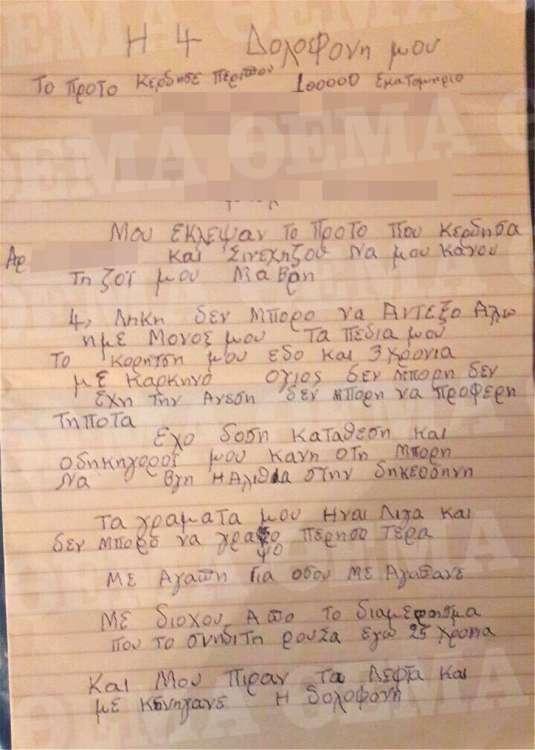 Η 4 Δολοφονη μου
Το προτο Κερδησε περιπου 100000 Εκατομηριο
Μου εκλεψαν το προτο που κερδησα
Αρ
και Σινεχηζου να μου κανου
τη ζοϊ μου Μαβρη
4, Ληκη δεν μπορο να Αντεξο Αλω
ημε Μονος μου τα πεδια μου
το κορητση μου εδο και 3 χρονια
με καρκηνο ογιος δεν μπορη δεν
εχη την Ανεση δεν μπορη να προφερη
τηποτα
Εχο δοση καταθεση και
οδηκηγοροϊ μου κανη οτη μπορη
να βγη Η Αλιθια στην δηκεοδηνη
Τα γραματα μου Ηναι Λιγα και
δεν μπορο να γραψο περησο τερα
Με Αγαπη για οσου με Αγαπανε
Με διοχου Απο το διαμερησμα
που το σηνδιτη ρουσα εγω 25 χρονια
και Μου πιραν τα Λεφτα και
με κηνηγανε Η δολοφονη
ΘΕΜΑ ΘΕΜΑ ΘΕΜΑ